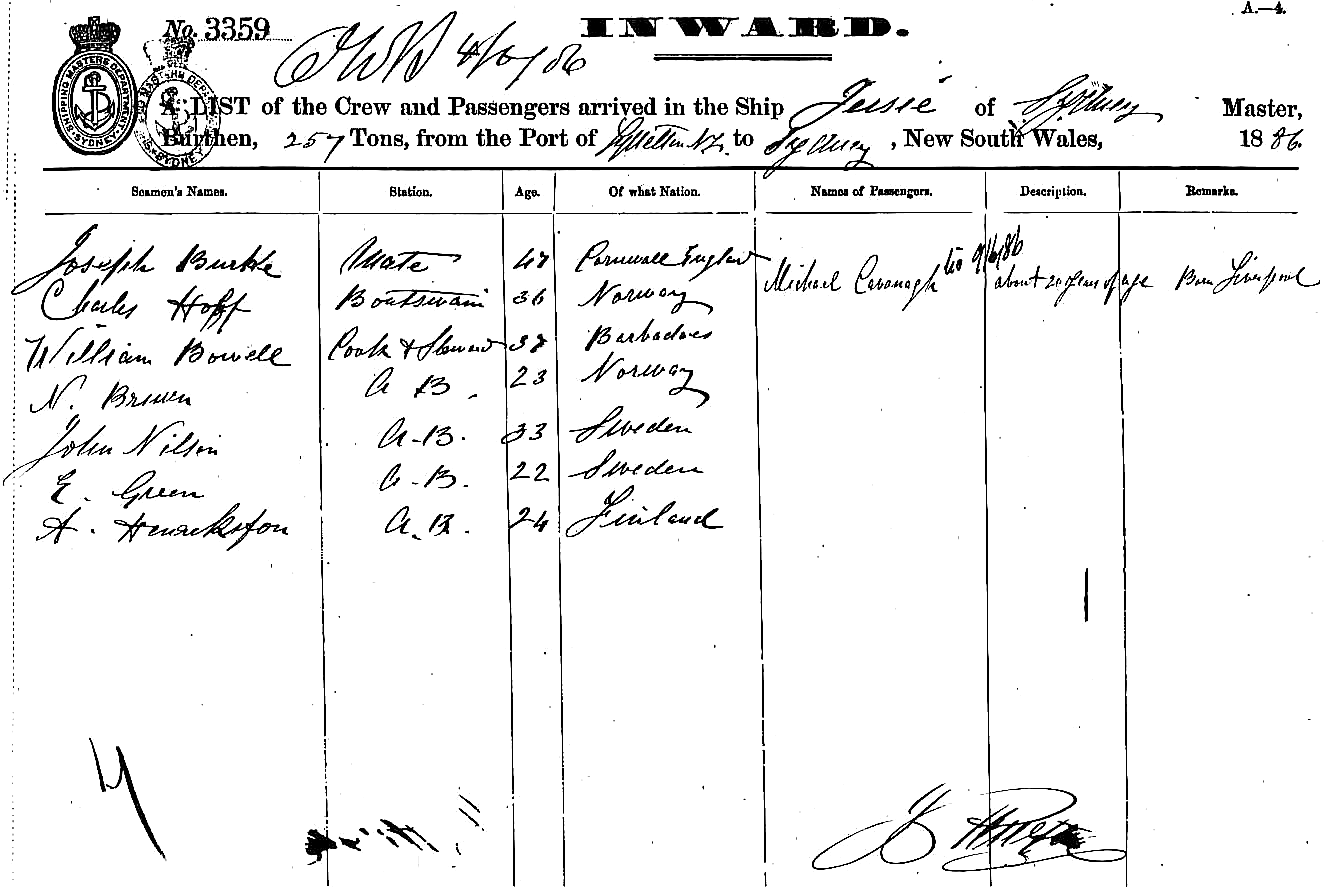 A.—4.
No. 3359
INWARD.
SHIPPING MASTERS DEPARTMENT SYDNEY
A LIST of the Crew and Passengers arrived in the Ship Jessie of Sydney Master,
Burthen, 257 Tons, from the Port of N.Z. to Sydney, New South Wales, 1886.
Seamen's Names. Station. Age. Of what Nation. Names of Passengers. Description. Remarks.
Joseph Burke Mate 47 Cornwall England
Michael Cavanagh about 20 years of age Born Liverpool
Charles Hoff Boatswain 36 Norway
William Bowell Cook & Steward 37 Barbadoes
N. Brown A B. 23 Norway
John Nilson A.B. 33 Sweden
E. Green A.B. 22 Sweden
A. Henrickson A.B. 24 Finland